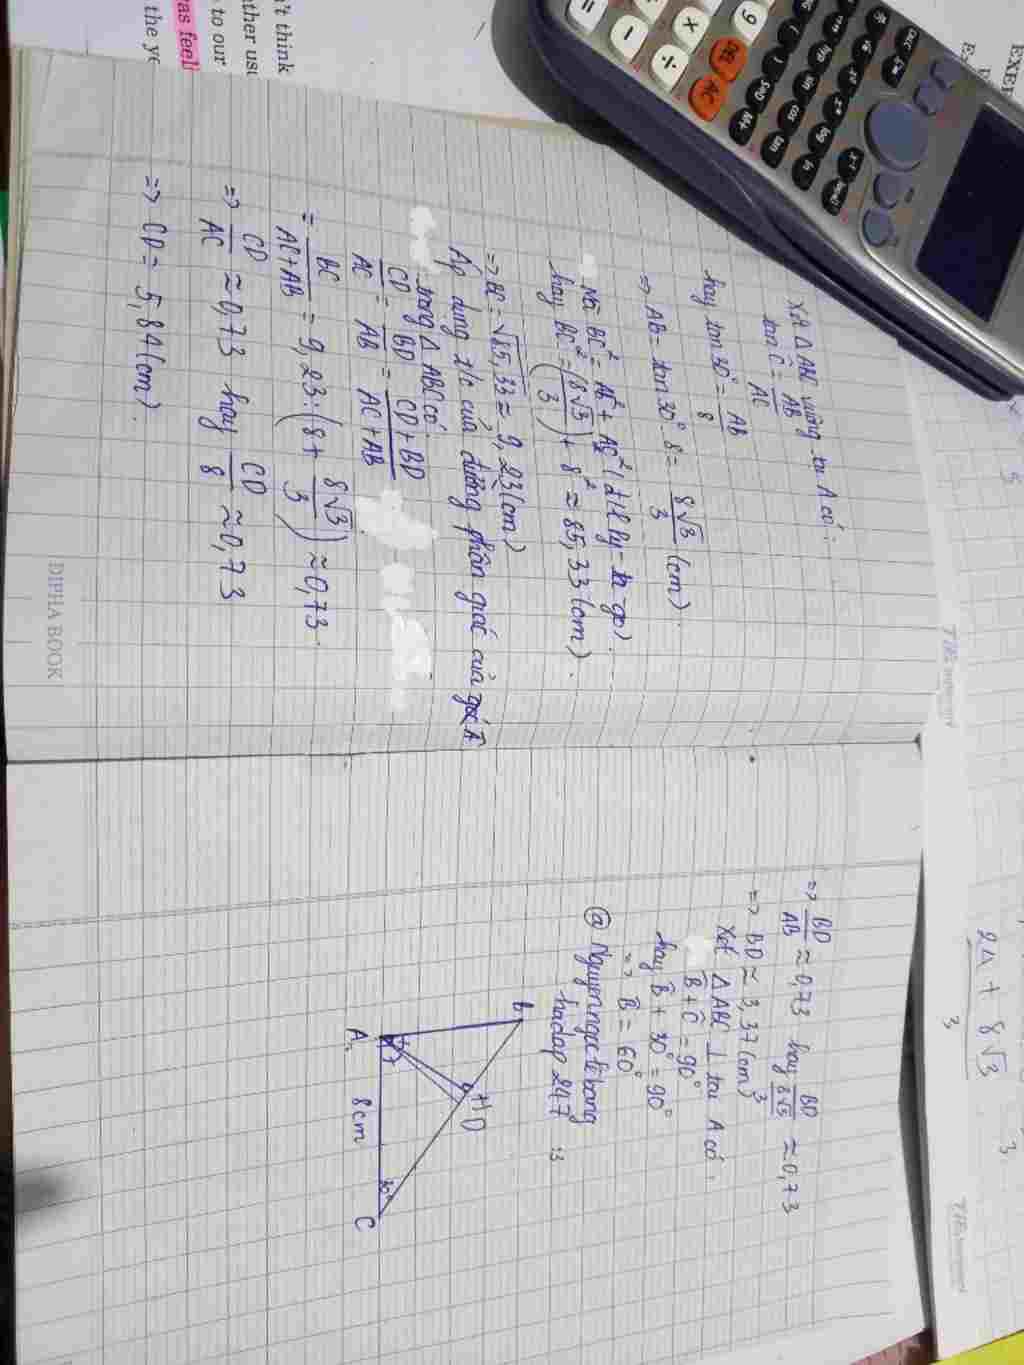 Xét △ABC vuông tại A có:
tan Ĉ = AB/AC
hay tan 30° = AB/8
=> AB = tan 30°. 8 = 8√3/3 (cm).
Mà BC² = AB² + AC² (đ/l Py-ta-go).
hay BC² = (8√3/3)² + 8² ≈ 85,33 (cm).
=> BC = √85,33 ≈ 9,23 (cm)
Áp dụng t/c của đường phân giác của góc A
trong △ABC có:
CD/AC = BD/AB = CD+BD/AC+AB
= BC/AC+AB = 9,23:(8 + 8√3/3) ≈ 0,73.
=> CD/AC ≈ 0,73 hay CD/8 ≈ 0,73
=> CD = 5,84 (cm).
DIPHA BOOK
=> BD/AB ≈ 0,73 hay BD/8√3/3 ≈ 0,73
=> BD ≈ 3,37 (cm)
Xét △ABC ⊥ tại A có:
B̂ + Ĉ = 90°
hay B̂ + 30° = 90°
=> B̂ = 60°
@ Nguyenngaclebang
hoidap 247 :3
B
H
D
A
8cm
30°
C
24 + 8√3
3
3
5
't think
ther us
to our
as feel
the ye
EXE